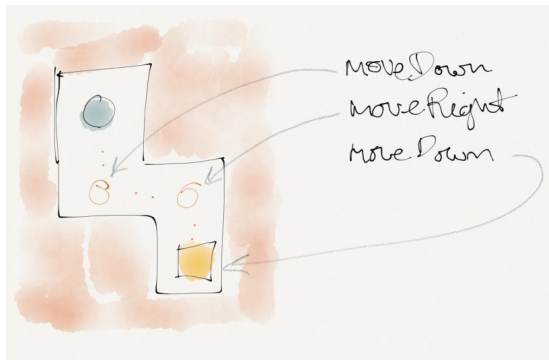 moveDown
moveRight
moveDown